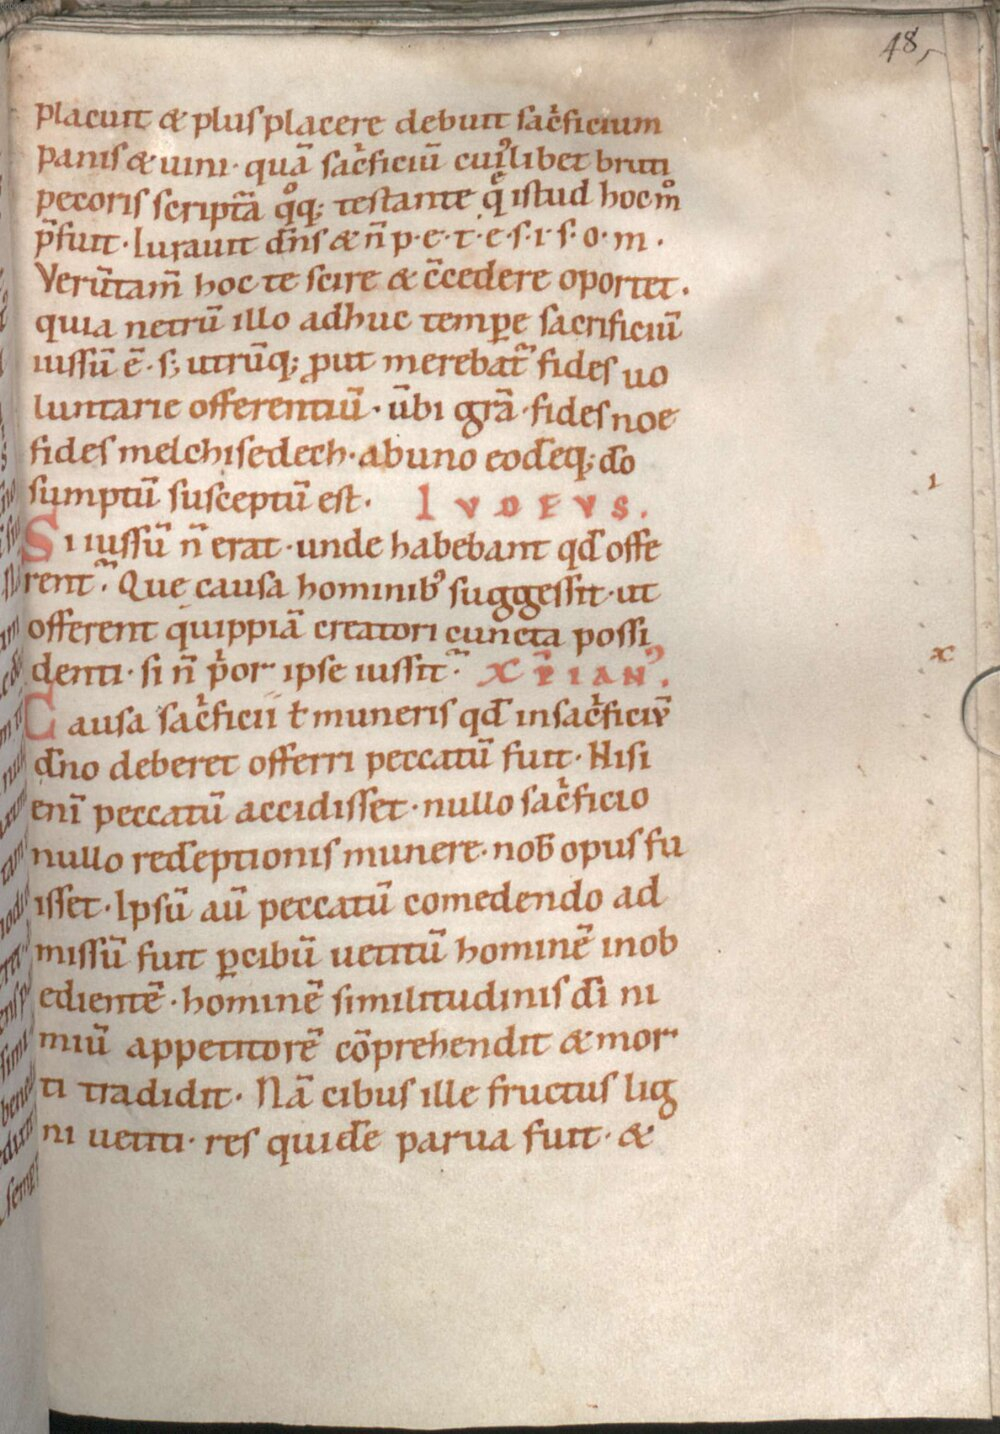 48,
placuit & plus placere debuit sac̉ficium
panis & uini · quā sac̉ficiū cui᷒libet bruti
pecoris scriptā qͦq; testante q̄ istud hoc mͦ
p̄fuit · Iurauit dn̄s & n̄ p · e · t · e · s · i · s · o · m ·
Verūtam̄ hoc te scire & c̄cedere oportet ·
quia netrū illo adhuc tempe sacrificiū
iussū ē · s; utrūq; ꝓut merebat᷑ fides uo
luntarie offerentiū · ūbi grā · fides noe
fides melchisedech · ab uno eodēq; dō
sumptū susceptū est · IVDEVS .
Si iussū n̄ erat · unde habebant qd̄ offe
rent · Que causa hominib᷒ suggessit · ut
offerent quippiā creatori cuncta possi
denti · si n̄ p̉or ipse iussit · XP̄IAN᷒ .
Causa sac̉ficii ł muneris qd̄ in sac̉ficiū
dn̄o deberet offerri peccatū fuit · Nisi
enī peccatū accidisset · nullo sac̉ficio
nullo redēptionis munere · nob̄ opus fu
isset · Ipsū aū peccatū comedendo ad
missū fuit ꝑ cibū uetitū hominē inob
edientē · hominē similitudinis dī ni
miū appetitorē cōprehendit & mor
ti tradidit · Nā cibus ille fructus lig
ni uetiti · res quidē parua fuit · &
i
x